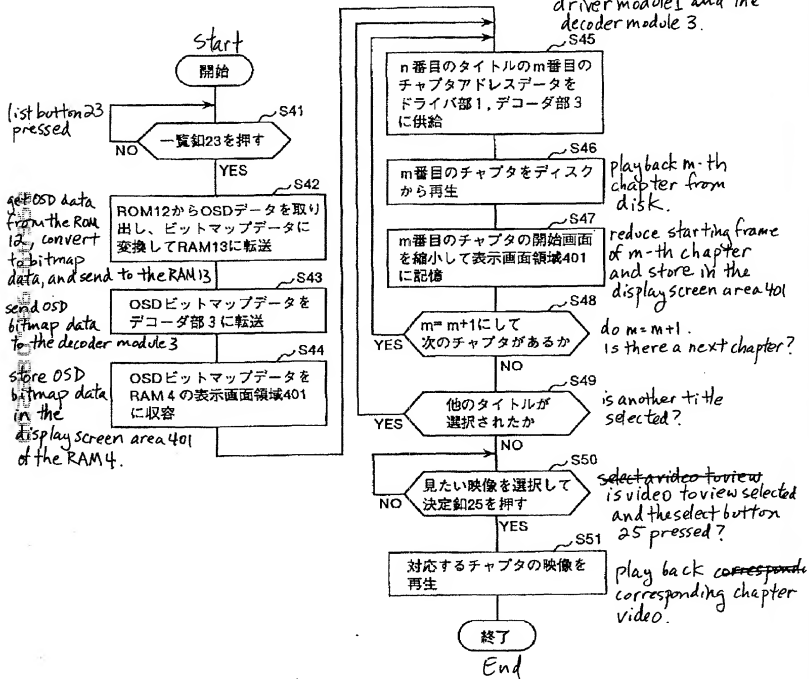 Start
開始
list button 23
pressed
S41
一覧釦23を押す
NO
YES
S42
get OSD data
from the ROM
12, convert
to bitmap
data, and send to the RAM13
ROM12からOSDデータを取り
出し、ビットマップデータに
変換してRAM13に転送
S43
send OSD
bitmap data
to the decoder module 3
OSDビットマップデータを
デコーダ部3に転送
S44
store OSD
bitmap data
in the
display screen area 401
of the RAM 4.
OSDビットマップデータを
RAM4の表示画面領域401
に収容
driver module 1 and the
decoder module 3.
S45
n番目のタイトルのm番目の
チャプタアドレスデータを
ドライバ部1,デコーダ部3
に供給
S46
m番目のチャプタをディスク
から再生
playback m-th
chapter from
disk.
S47
m番目のチャプタの開始画面
を縮小して表示画面領域401
に記憶
reduce starting frame
of m-th chapter
and store in the
display screen area 401
S48
m=m+1にして
次のチャプタがあるか
YES
NO
do m=m+1.
Is there a next chapter?
S49
他のタイトルが
選択されたか
YES
NO
is another title
selected?
S50
見たい映像を選択して
決定釦25を押す
NO
YES
select a video to view
is video to view selected
and the select button
25 pressed?
S51
対応するチャプタの映像を
再生
play back correspond
corresponding chapter
video.
終了
End